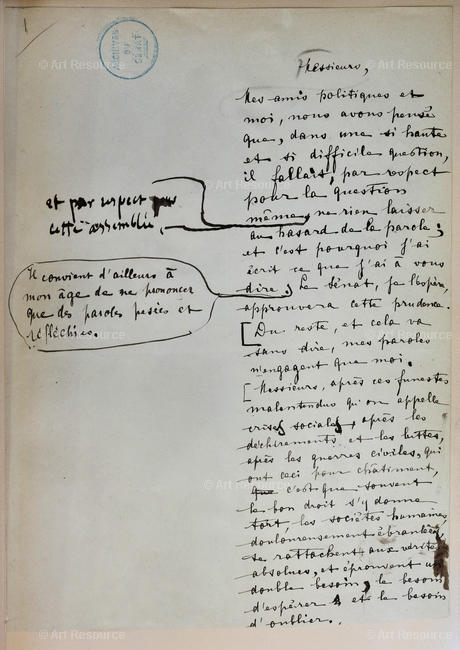 1
Messieurs,
Mes amis politiques et
moi, nous avons pensé
que, dans une si haute
et si difficile question,
il fallait, par respect
pour la question
même, ne rien laisser
au hasard de la parole;
et c'est pourquoi j'ai
écrit ce que j'ai à vous
dire; Le Sénat, je l'espère,
approuvera cette prudence.
et par respect pour
cette assemblée,
Il convient d'ailleurs à
mon âge de ne prononcer
que des paroles pesées et
réfléchies.
[Du reste, et cela va
sans dire, mes paroles
n'engagent que moi.
[Messieurs, après ces funestes
malentendus qu'on appelle
crises sociales, après les
déchirements et les luttes,
après les guerres civiles, qui
ont ceci pour châtiment,
c'est que souvent
le bon droit s'y donne
tort, les sociétés humaines
douloureusement ébranlées
se rattachent aux vérités
absolues, et éprouvent un
double besoin, le besoin
d'espérer et le besoin
d'oublier.
© Art Resource
© Art Resource
© Art Resource
© Art Resource
© Art Resource
© Art Resource
© Art Resource
© Art Resource